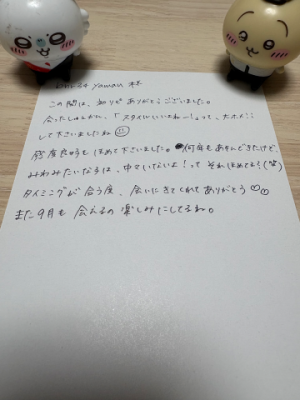 yamau 様
この間は、ありがとうございました。
会ったしゅんかん、「スタイルいいねー!」って、大ホメ
して下さいましたね
感度良好もほめて下さいました。何度もあそんできたけど、
みわみたいな子は、中々いないよ!ってそれほめてる?(笑)
タイミングが合う度、会いにきてくれてありがとう♡
また9月も会えるの楽しみにしてるね。